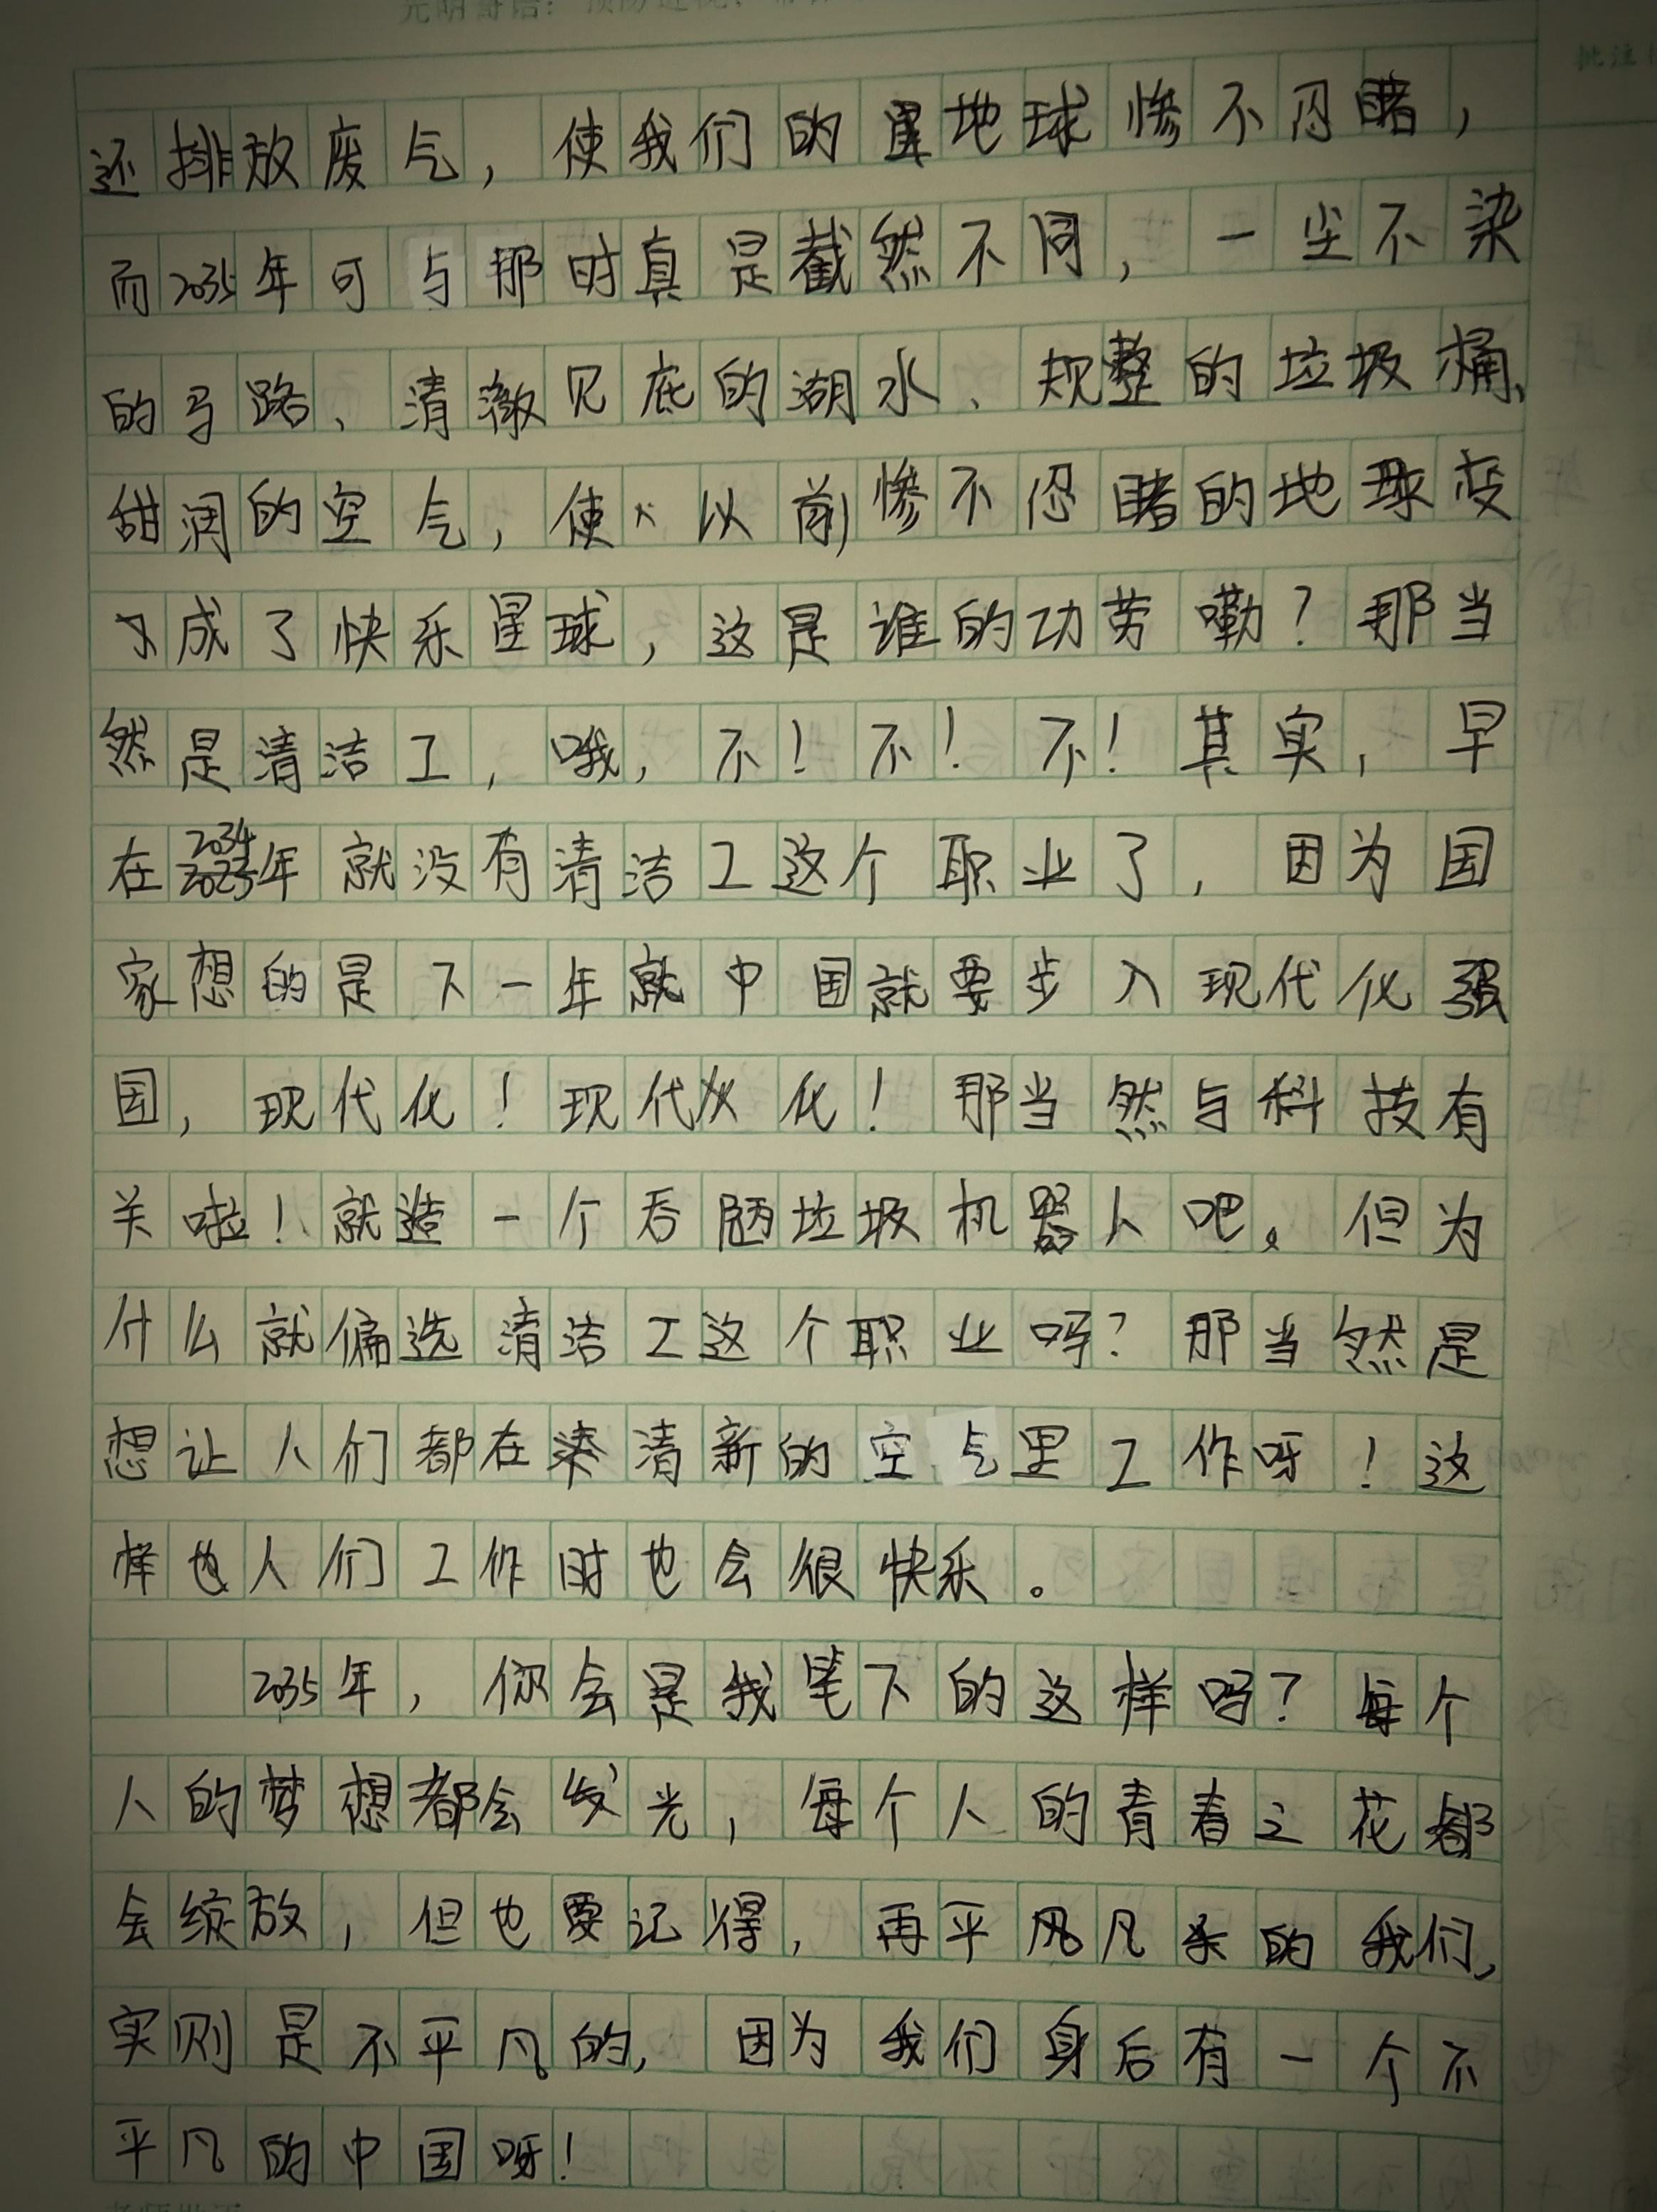 还排放废气，使我们的地球惨不忍睹，
而2035年可与那时真是截然不同，一尘不染
的马路、清澈见底的湖水、规整的垃圾桶、
甜润的空气，使以前惨不忍睹的地球变
成了快乐星球，这是谁的功劳嘞？那当
然是清洁工，哦，不！不！不！其实，早
在2034年就没有清洁工这个职业了，因为国
家想的是下一年就中国就要步入现代化强
国，现代化！现代化！那当然与科技有
关啦！就造一个吞垃圾机器人吧。但为
什么就偏选清洁工这个职业吗？那当然是
想让人们都在清新的空气里工作呀！这
样也人们工作时也会很快乐。
2035年，你会是我笔下的这样吗？每个
人的梦想都会发光，每个人的青春之花都
会绽放，但也要记得，再平凡的我们，
实则是不平凡的，因为我们身后有一个不
平凡的中国呀！